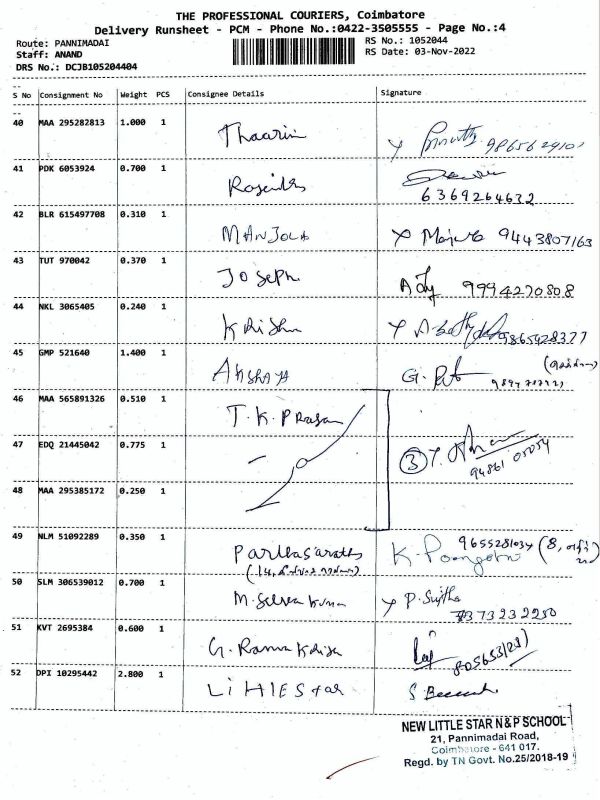 THE PROFESSIONAL COURIERS, Coimbatore
Delivery Runsheet - PCM - Phone No.:0422-3505555 - Page No.:4
Route: PANNIMADAI
Staff: ANAND
DRS No.: DCJB105204404
RS No.: 1052044
RS Date: 03-Nov-2022
S No Consignment No Weight PCS Consignee Details Signature
40 MAA 295282813 1.000 1 Thaarin
41 PDK 6053924 0.700 1 6369264632
42 BLR 615497708 0.310 1 MANJOLA 9443807163
43 TUT 970042 0.370 1 Joseph 9994270808
44 NKL 3065405 0.240 1 Krishn 9865928377
45 GMP 521640 1.400 1 AKSHAYA G.
46 MAA 565891326 0.510 1 T.K PRASAN
47 EDQ 21445042 0.775 1 3 94861 05054
48 MAA 295385172 0.250 1
49 NLM 51092289 0.350 1 Parthasarathy 9655281034 K.
50 SLM 306539012 0.700 1 M. Selvakumar P. Sujitha
7373232250
51 KVT 2695384 0.600 1 G. Rama Krish
52 DPI 10295442 2.800 1 LittlE Star S.
NEW LITTLE STAR N&P SCHOOL
21, Pannimadai Road,
Coimbatore - 641 017.
Regd. by TN Govt. No.25/2018-19